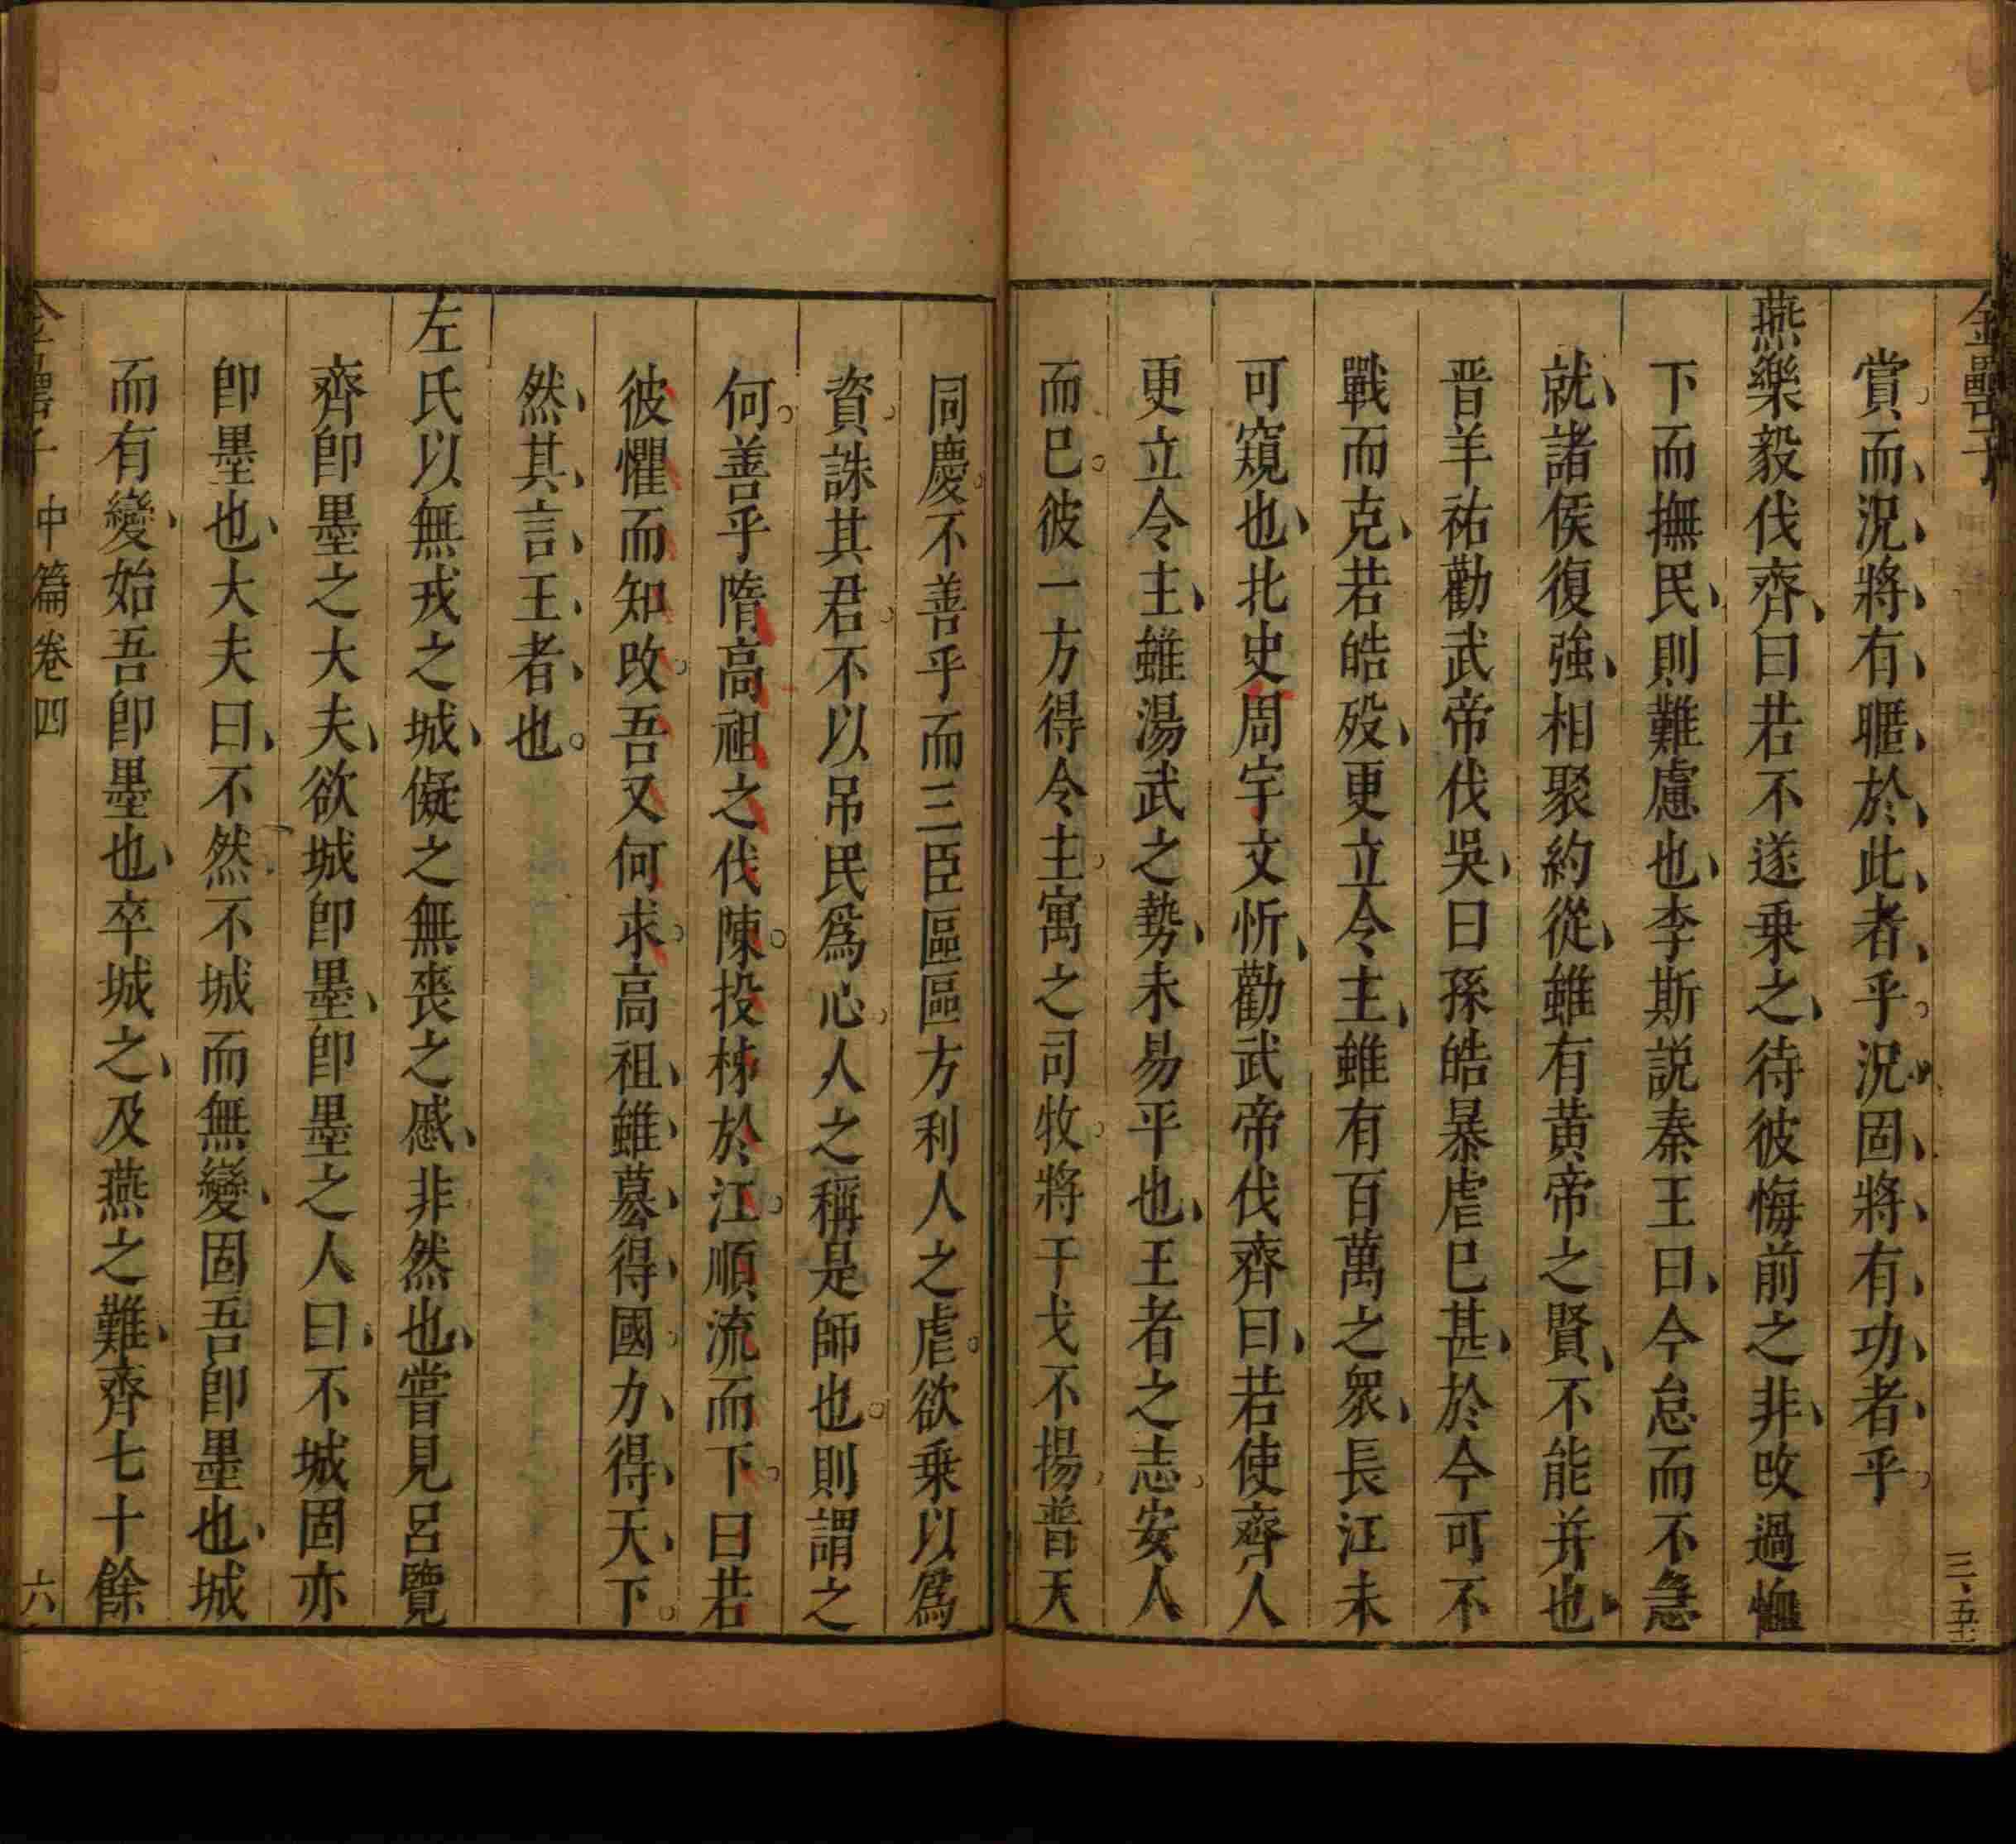 金罍子
賞而況將有暱於此者乎況固將有功者乎
燕樂毅伐齊曰若不遂乘之待彼悔前之非改過恤
下而撫民則難慮也李斯説秦王曰今怠而不急
就諸侯復強相聚約從雖有黄帝之賢不能并也
晋羊祐勸武帝伐吳曰孫皓暴虐已甚於今可不
戰而克若皓殁更立令主雖有百萬之衆長江未
可窺也北史周宇文忻勸武帝伐齊曰若使齊人
更立令主雖湯武之勢未易平也王者之志安人
而已彼一方得令主寓之司牧將干戈不揚普天
同慶不善乎而三臣區區方利人之虐欲乗以爲
資誅其君不以吊民爲心人之稱是師也則謂之
何善乎隋高祖之伐陳投柹於江順流而下曰若
彼懼而知改吾又何求高祖雖簒得國力得天下
然其言王者也
左氏以無戎之城儗之無喪之慼非然也嘗見呂覽
齊卽墨之大夫欲城卽墨卽墨之人曰不城固亦
卽墨也大夫曰不然不城而無變固吾卽墨也城
而有變始吾卽墨也卒城之及燕之難齊七十餘
金罍子 中篇卷四 六